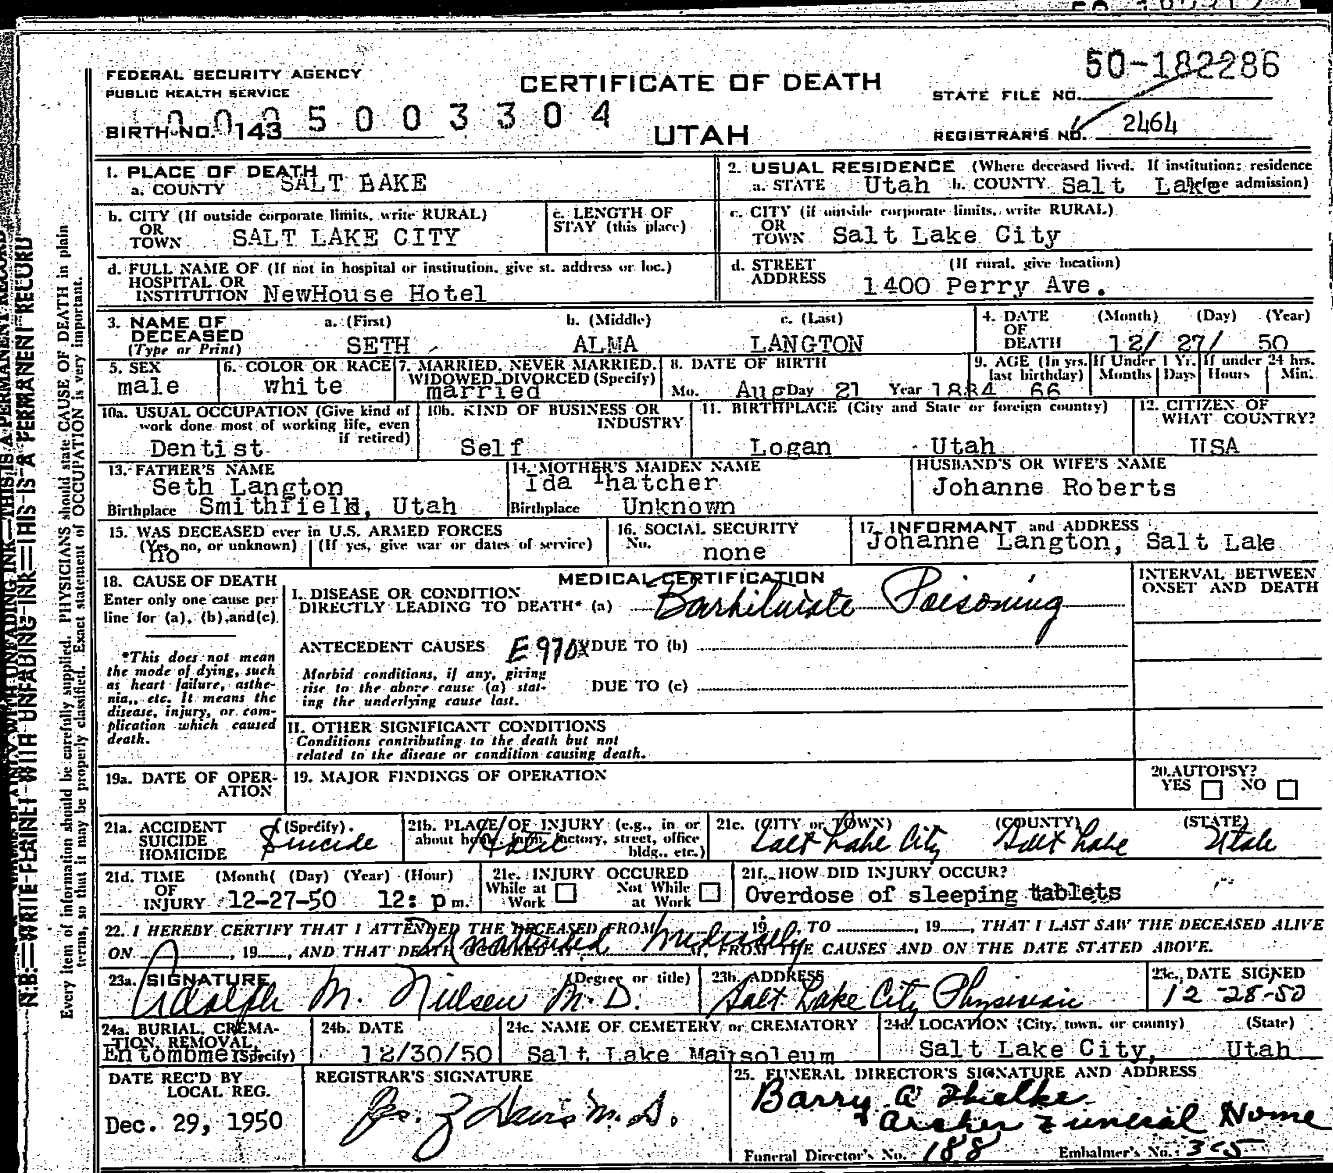 FEDERAL SECURITY AGENCY
PUBLIC HEALTH SERVICE
CERTIFICATE OF DEATH
UTAH
STATE FILE NO. 50-182286
BIRTH NO. 143
005003304
REGISTRAR'S NO. 2464
1. PLACE OF DEATH
a. COUNTY SALT LAKE
2. USUAL RESIDENCE (Where deceased lived. If institution: residence before admission)
a. STATE Utah b. COUNTY Salt Lake
b. CITY (If outside corporate limits, write RURAL)
OR
TOWN SALT LAKE CITY
c. LENGTH OF
STAY (this place)
c. CITY (if outside corporate limits, write RURAL)
OR
TOWN Salt Lake City
d. FULL NAME OF (If not in hospital or institution, give st. address or loc.)
HOSPITAL OR
INSTITUTION NewHouse Hotel
d. STREET (If rural, give location)
ADDRESS 1400 Perry Ave.
3. NAME OF a. (First) b. (Middle) c. (Last)
DECEASED
(Type or Print) SETH ALMA LANGTON
4. DATE (Month) (Day) (Year)
OF
DEATH 12/ 27/ 50
5. SEX
male
6. COLOR OR RACE
white
7. MARRIED, NEVER MARRIED,
WIDOWED, DIVORCED (Specify)
married
8. DATE OF BIRTH
Mo. Aug Day 21 Year 1884
9. AGE (In yrs. last birthday)
66
If Under 1 Yr. Months Days
If under 24 hrs. Hours Min.
10a. USUAL OCCUPATION (Give kind of
work done most of working life, even
if retired)
Dentist
10b. KIND OF BUSINESS OR
INDUSTRY
Self
11. BIRTHPLACE (City and State or foreign country)
Logan Utah
12. CITIZEN OF
WHAT COUNTRY?
USA
13. FATHER'S NAME
Seth Langton
Birthplace Smithfield, Utah
14. MOTHER'S MAIDEN NAME
Ida Thatcher
Birthplace Unknown
HUSBAND'S OR WIFE'S NAME
Johanne Roberts
15. WAS DECEASED ever in U.S. ARMED FORCES
(Yes, no, or unknown) (If yes, give war or dates of service)
no
16. SOCIAL SECURITY
No. none
17. INFORMANT and ADDRESS
Johanne Langton, Salt Lake
18. CAUSE OF DEATH
Enter only one cause per
line for (a), (b), and (c)
*This does not mean
the mode of dying, such
as heart failure, asthe-
nia, etc. It means the
disease, injury, or com-
plication which caused
death.
MEDICAL CERTIFICATION
I. DISEASE OR CONDITION
DIRECTLY LEADING TO DEATH* (a) Barbiturate Poisoning
ANTECEDENT CAUSES E970X DUE TO (b)
Morbid conditions, if any, giving
rise to the above cause (a) stat-
ing the underlying cause last.
DUE TO (c)
II. OTHER SIGNIFICANT CONDITIONS
Conditions contributing to the death but not
related to the disease or condition causing death.
INTERVAL BETWEEN
ONSET AND DEATH
19a. DATE OF OPER-
ATION
19. MAJOR FINDINGS OF OPERATION
20. AUTOPSY?
YES NO
21a. ACCIDENT (Specify)
SUICIDE
HOMICIDE
Suicide
21b. PLACE OF INJURY (e.g., in or
about home, farm, factory, street, office
bldg., etc.)
Hotel
21c. (CITY or TOWN) (COUNTY) (STATE)
Salt Lake City Salt Lake Utah
21d. TIME (Month) (Day) (Year) (Hour)
OF
INJURY 12-27-50 12: p m.
21e. INJURY OCCURED
While at Work Not While at Work
21f. HOW DID INJURY OCCUR?
Overdose of sleeping tablets
22. I HEREBY CERTIFY THAT I ATTENDED THE DECEASED FROM 19 TO , 19 , THAT I LAST SAW THE DECEASED ALIVE
ON , 19 , AND THAT DEATH OCCURED AT M, FROM THE CAUSES AND ON THE DATE STATED ABOVE.
Unattended medically
23a. SIGNATURE (Degree or title)
Adolph M. Nielsen M.D.
23b. ADDRESS
Salt Lake City Physician
23c. DATE SIGNED
12-28-50
24a. BURIAL, CREMA-
TION, REMOVAL (Specify)
Entombment
24b. DATE
12/30/50
24c. NAME OF CEMETERY or CREMATORY
Salt Lake Mausoleum
24d. LOCATION (City, town, or county) (State)
Salt Lake City, Utah
DATE REC'D BY
LOCAL REG.
Dec. 29, 1950
REGISTRAR'S SIGNATURE
25. FUNERAL DIRECTOR'S SIGNATURE AND ADDRESS
Barry A Thielke
Archer Funeral Home
Funeral Director's No. 188 Embalmer's No. 355
N.B.—WRITE PLAINLY WITH UNFADING INK—THIS IS A PERMANENT RECORD
Every item of information should be carefully supplied. PHYSICIANS should state CAUSE OF DEATH in plain
terms, so that it may be properly classified. Exact statement of OCCUPATION is very important.